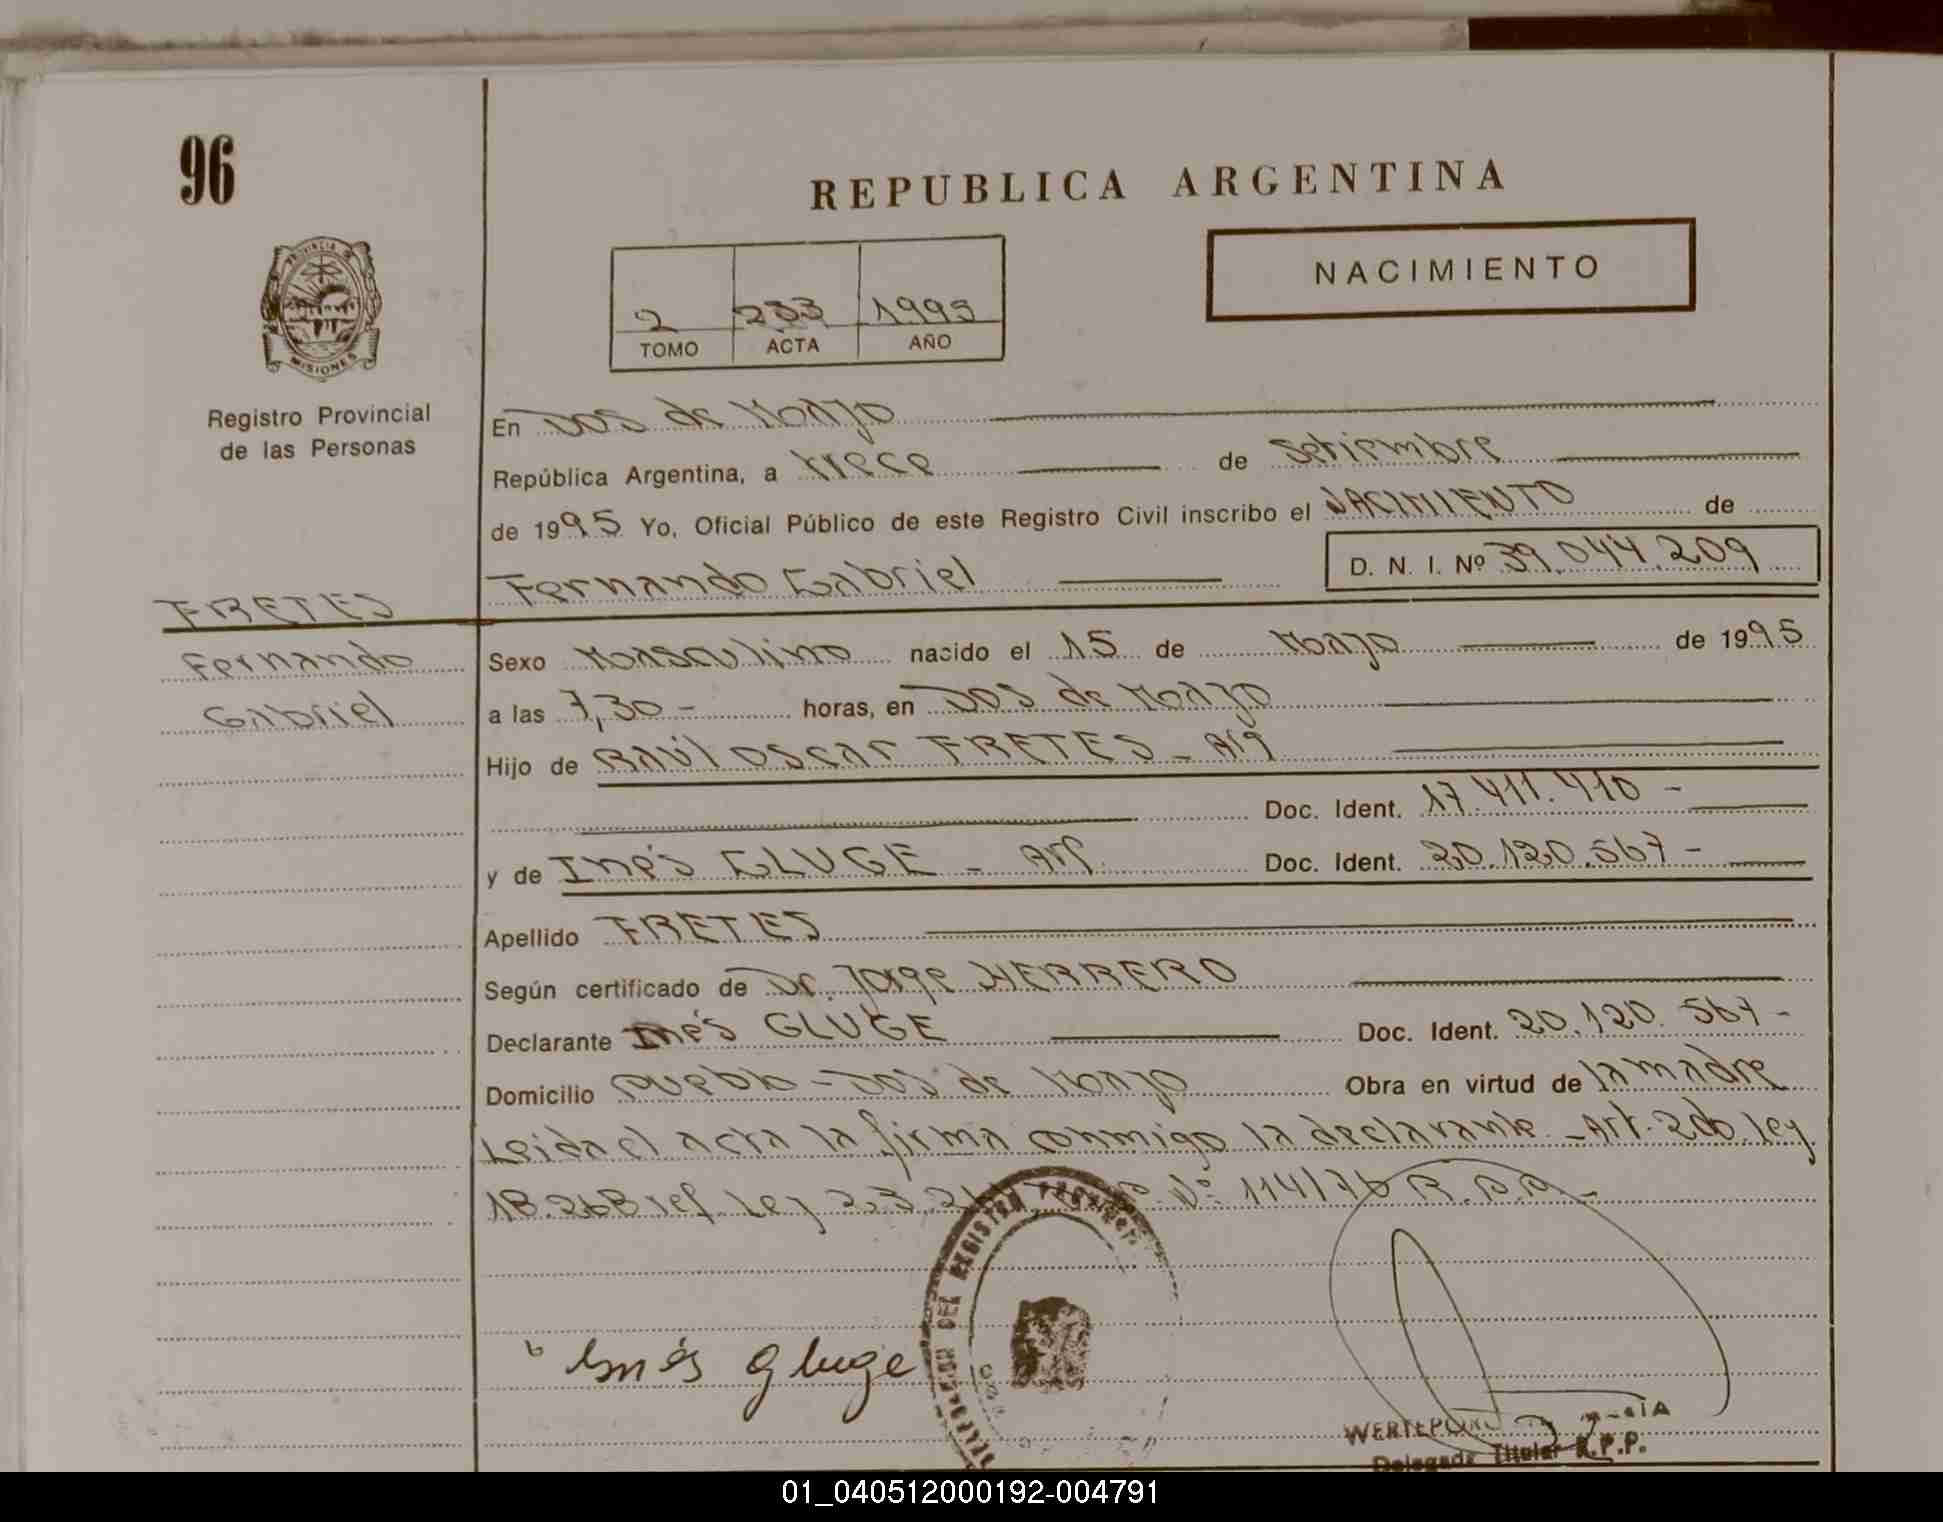 96
REPUBLICA ARGENTINA
NACIMIENTO
2 233 1995
TOMO ACTA AÑO
PROVINCIA DE
MISIONES
Registro Provincial
de las Personas
En Dos de Marzo
República Argentina, a trece de setiembre
de 1995 Yo, Oficial Público de este Registro Civil inscribo el NACIMIENTO de
Fernando Gabriel D. N. I. Nº 39.044.209
FRETES
Fernando
Gabriel
Sexo Masculino nacido el 15 de Marzo de 1995
a las 7,30- horas, en Dos de Marzo
Hijo de Raúl Oscar FRETES - Arg
Doc. Ident. 17.411.410 -
y de Inés GLUGE - Arg. Doc. Ident. 20.120.567 -
Apellido FRETES
Según certificado de Dr. Jorge HERRERO
Declarante Inés GLUGE Doc. Ident. 20.120.567 -
Domicilio Pueblo - Dos de Marzo Obra en virtud de la madre
Leida el acta la firma conmigo la declarante - Art. 2do. Ley
18.268 ref. Ley Nº 114/76 R.P.P. -
DEL REGISTRO PROVINCIAL
Inés Gluge
Delegada Titular R.P.P.
01_040512000192-004791